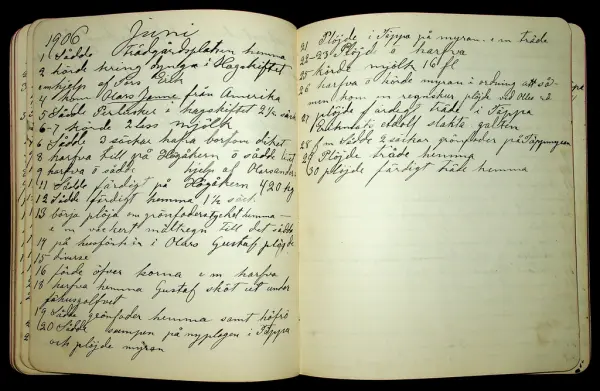 1906 Juni
1 Sådde Trädgårdsplatsen hemma
2 körde kring dynga i Hagaskiftet
em hjelp af Pers Erik
4 kom Olars Janne från Amerika
5 Sådde Perlusker i hagskiftet 2½ säck
6-7 körde 2 lass mjölk
6 Sådde 3 säckar hafra bortom diket
8 harfva till på Högåkern o sådde litet
9 harfva o sådde hjelp af Olarsanders
11 Sådde färdigt på Högåkern 420 kg
12 Sådde färdigt hemma 1½ säck
13 börja plöja om grönfoderstycket hemma
e m vackert måltregn till det sådda
14 på husförhör i Olars Gustaf plöjde
15 diverse
16 förde öfver korna e m harfva
18 harfva hemma Gustaf sköt ut under
fähusgolfvet
19 Sådde grönfoder hemma samt höfrö
20 Sådde sumpen på nyplogen i Täppa
och plöjde myran
21 Plöjde i Täppa på myran e m träde
22-23 Plöjd o harfva
25 körde mjölk 16 fl
26 harfva o körde myran i ordning att så
men kom en regnskur plöjde ved Olars
27 plöjde färdigt träde i Täppa
Adolf slakta galten
28 f m Sådde 2 säckar grönfoder på Täppmyran
29 Plöjde träde hemma
30 plöjde färdigt träde hemma